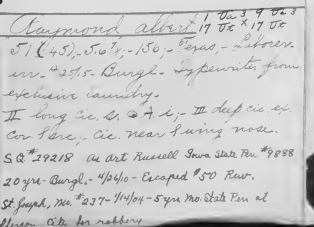 Raymond Albert 1 Ua 3 9 Ua 3
17 Ut X 17 Ut
51 (45),-5.6⅞,-150,-Texas,-Laborer.
Burgl.-Typewriter from
exclusive laundry.
II long cic. s. @ A i;- III dup cic ex.
cic. near wing nose.
S.Q. #29218 as Art Russell Iowa State Pen #9888
20 yrs-Burgl.-4/26/10-Escaped $50 Rew.
St. Joseph, Mo. #237-1/14/04-5 yrs Mo. State Pen at
City for robbery